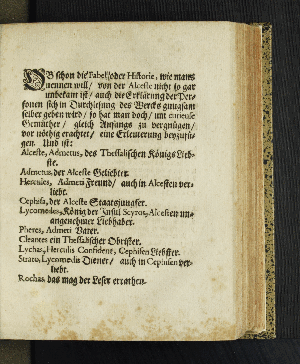 OB schon die Fabel/oder Historie, wie mans
nennen will/ von der Alceste nicht so gar
unbekant ist/ auch die Erklärung der Per-
sonen sich in Durchlesung des Wercks gnugsam
selber geben wird/ so hat man doch/ um curieuse
Gemüther/ gleich Anfangs zu vergnügen/
vor nöthig erachtet/ eine Erleuterung beyzufü-
gen. Und ist:
Alceste, Admetus, des Thessalischen Königs Lieb-
ste.
Admetus, der Alceste Geliebter.
Hercules, Admeti Freund/ auch in Alcesten ver-
liebt.
Cephise, der Alceste Staatesjungfer.
Lycomedes, König der Insul Scyros, Alcesten un-
angenehmer Liebhaber.
Pheres, Admeti Vater.
Cleantes ein Thessalischer Obrister.
Lychas, Herculis Confident, Cephisen Liebster.
Strato, Lycomedis Diener/ auch in Cephisen ver-
liebt.
Rochas das mag der Leser errathen.